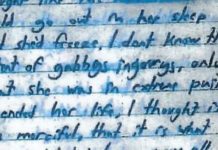 ld go out in her sleep
I shed freeze. I dont know th
nt of gabbys ingerys, only
t she was in extreme pain
ended her life, I thought i
merciful, that it is what